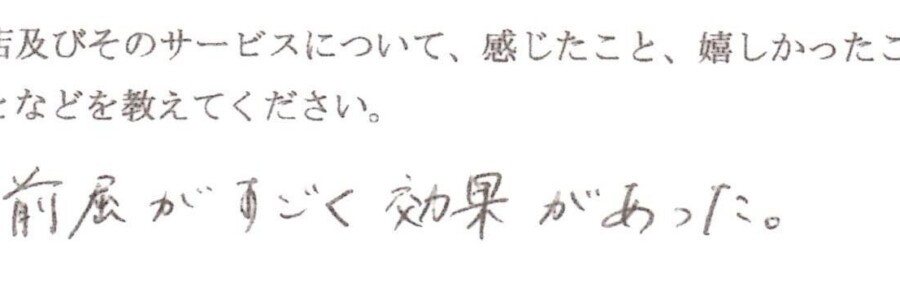 店及びそのサービスについて、感じたこと、嬉しかったこ
となどを教えてください。
前屈がすごく効果があった。